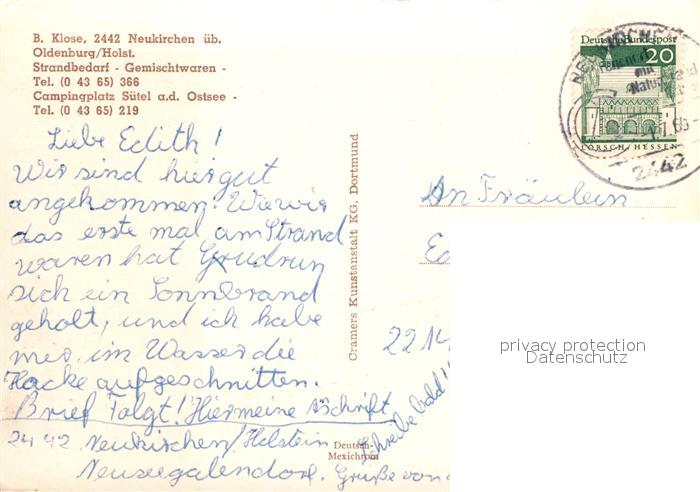 B. Klose, 2442 Neukirchen üb.
Oldenburg/Holst.
Strandbedarf - Gemischtwaren -
Tel. (0 43 65) 366
Campingplatz Sütel a.d. Ostsee -
Tel. (0 43 65) 219
Liebe Edith!
Wir sind hier gut
angekommen. Wie wir
das erste mal am Strand
waren hat Gudrun
sich ein Sonnbrand
geholt, und ich habe
mir im Wasser die
Hacke aufgeschnitten.
Brief Folgt! Hier meine Aschrift
2442 Neukirchen/Holstein
Neuseegalendorf. Grüße von
Schreibe bald!!
Cramers Kunstanstalt KG. Dortmund
Deutsch-
Mexichrom
Deutsche Bundespost
20
LORSCH/HESSEN
NEUKIRCHEN
2442
An Fräulein
2214
privacy protection
Datenschutz